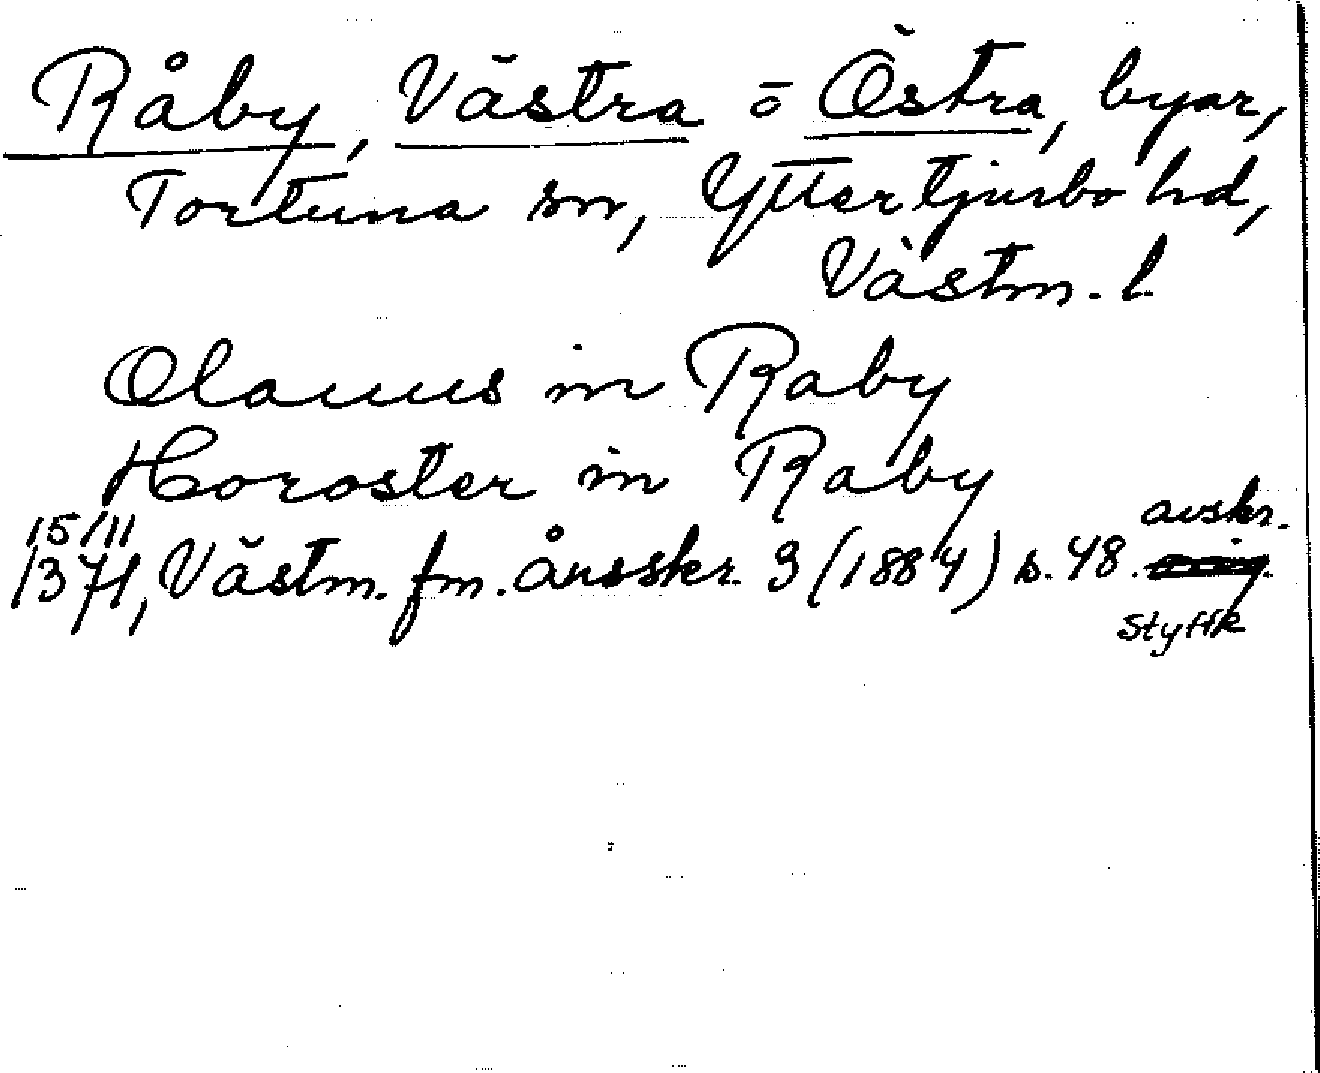 Råby, Västra o Östra, byar,
Tortuna sn, Yttertjurbo hd,
Västm. l.
Olauus in Raby
Horoster in Raby
15/11
1371, Västm. fm. årsskr. 3 (1884) s. 48. avskr.
Styffe